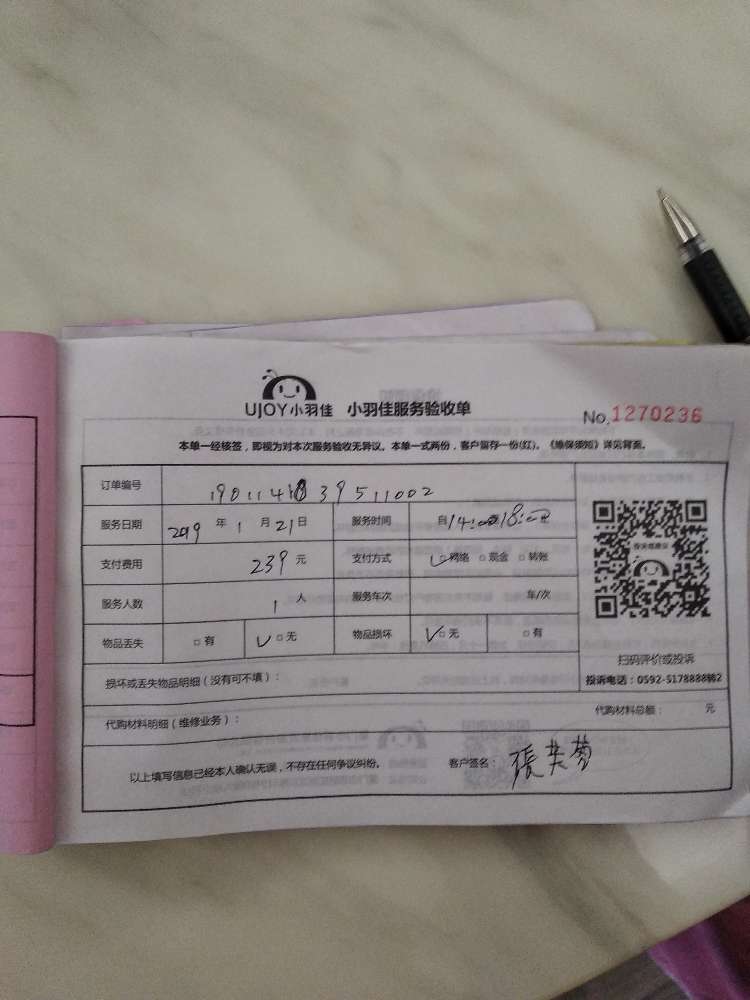 UJOY小羽佳 小羽佳服务验收单
No.1270236
本单一经核签，即视为对本次服务验收无异议。本单一式两份，客户留存一份(红)。《维保须知》详见背面。
订单编号
服务日期 2019 年 1 月 21 日 服务时间 自14:00至18:00
支付费用 239 元 支付方式 ✓□网络 □现金 □转账
服务人数 1 人 服务车次 车/次
物品丢失 □有 ✓□无 物品损坏 ✓□无 □有
扫码评价或投诉
损坏或丢失物品明细（没有可不填）：
投诉电话：0592-5178888转2
代购材料明细（维修业务）： 代购材料总额： 元
以上填写信息已经本人确认无误，不存在任何争议纠纷。 客户签名： 張